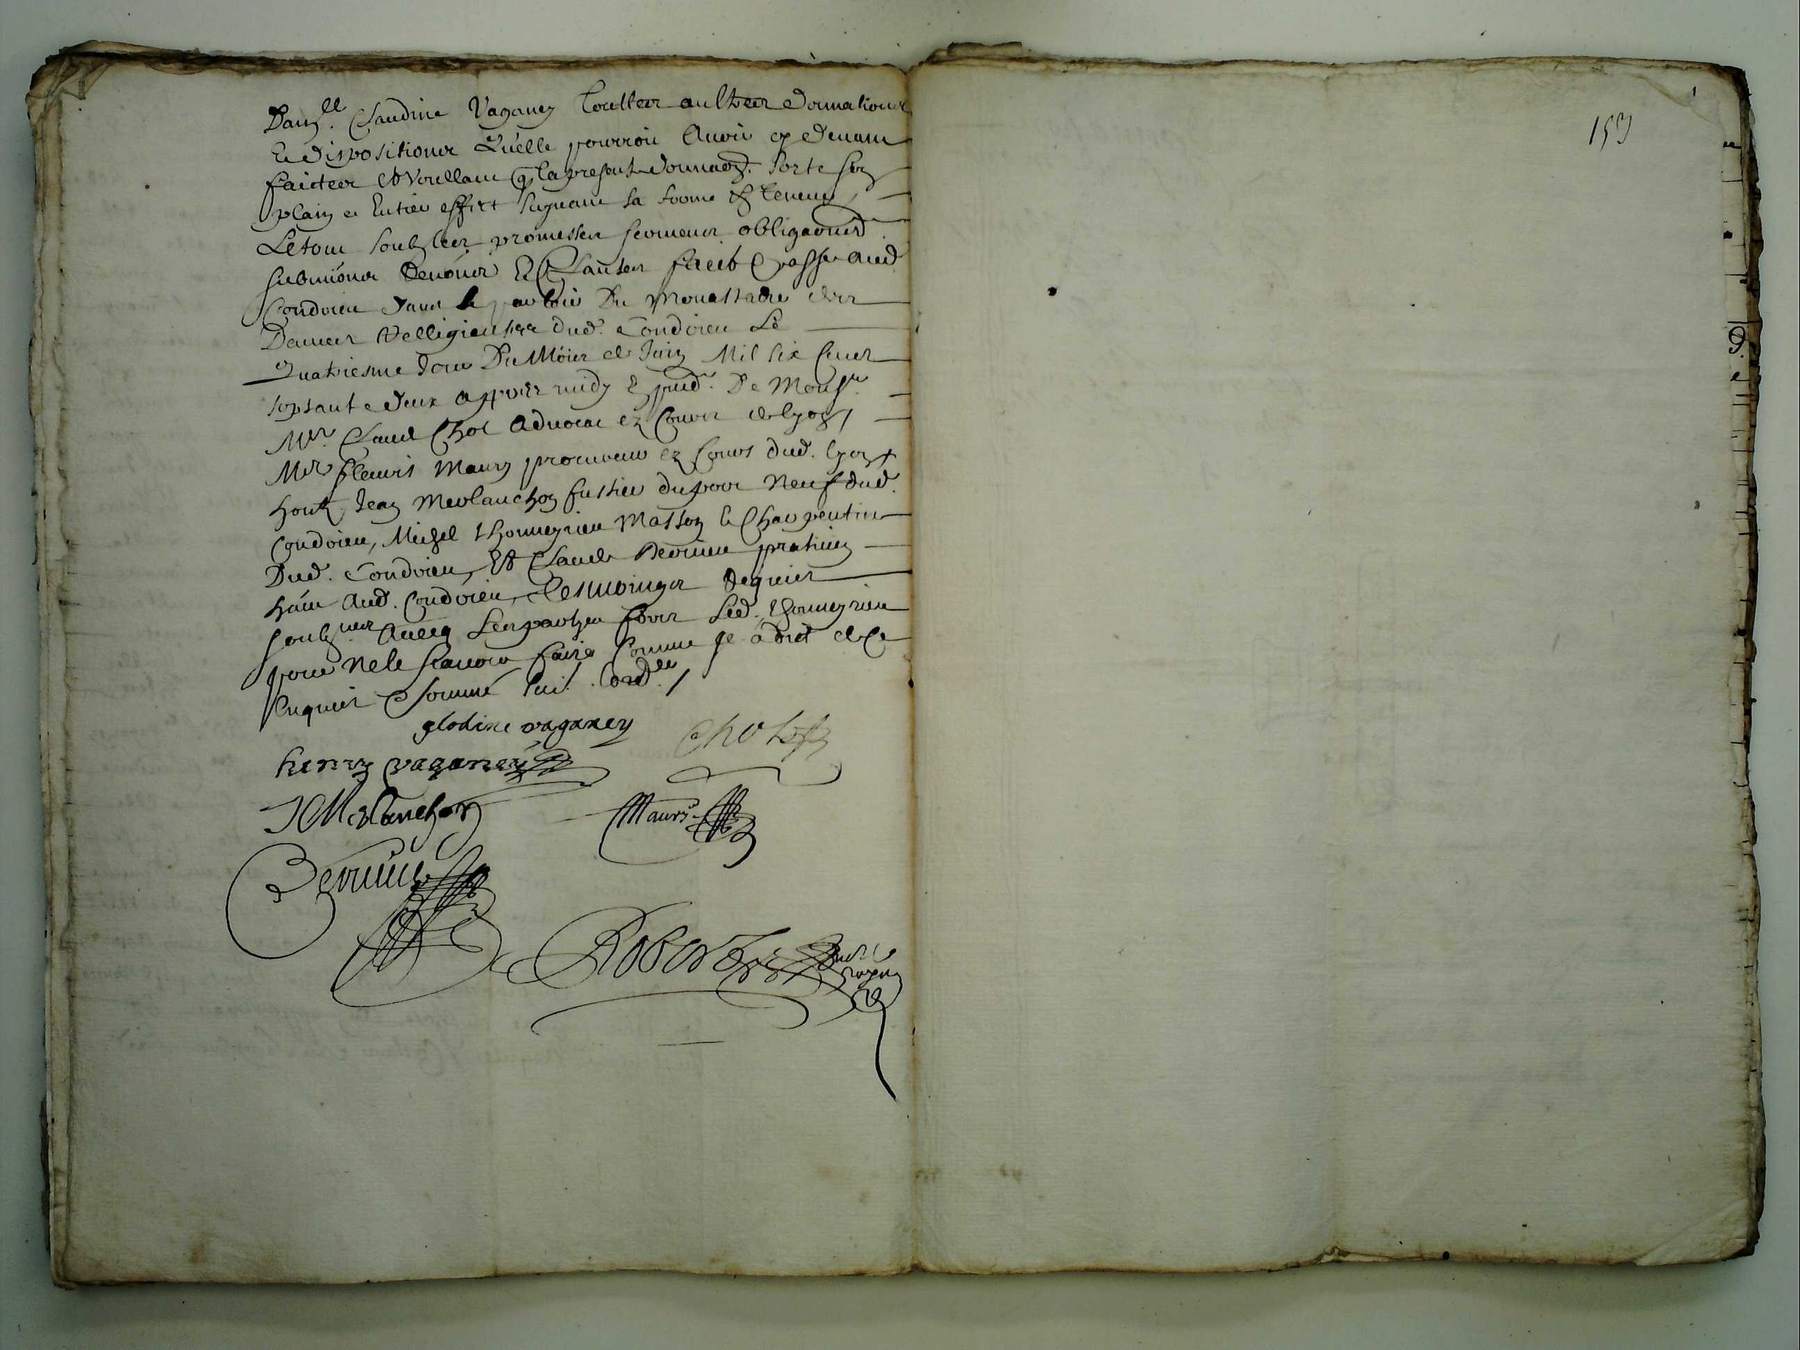 Dam.lle Claudine Vaganey touttes aultres donnations
et dispositions qu'elle pourroit avoir cy devant
faictes et voullant q la presente donnaon. sorte son
plain et entier effect suyvant sa forme & teneur,
Le tout soubz les promesses sermens obligaons
submions renons et clauses faict & passé aud.
Condrieu dans le parloir du monastere des
Dames Relligieuses dud. Condrieu Le
quatriesme jour du mois de juin mil six cens
soixante deux apprès midy & pnce. de Monsr.
Mre. Claude Chol advocat ez cours de Lyon,
Mre fleuris Maury procureur ez cours dud. Lyon
hont. Jean Merlanchon fustier du port neuf dud.
Condrieu, Michel thomeyrieu masson & charpentier
dud. Condrieu, et Claude Verrieu praticien
habt. aud. Condrieu, tesmoings requis
soubz.nes avecq les parties fors led. thomeyrieu
pour ne le scavoir faire comme je a dict de ce
enquis & sommé suit. lord.ce /
glodine vaganey
Chol
henry vaganey
J Merlanchon
Maury
Verrieu
Robert
153